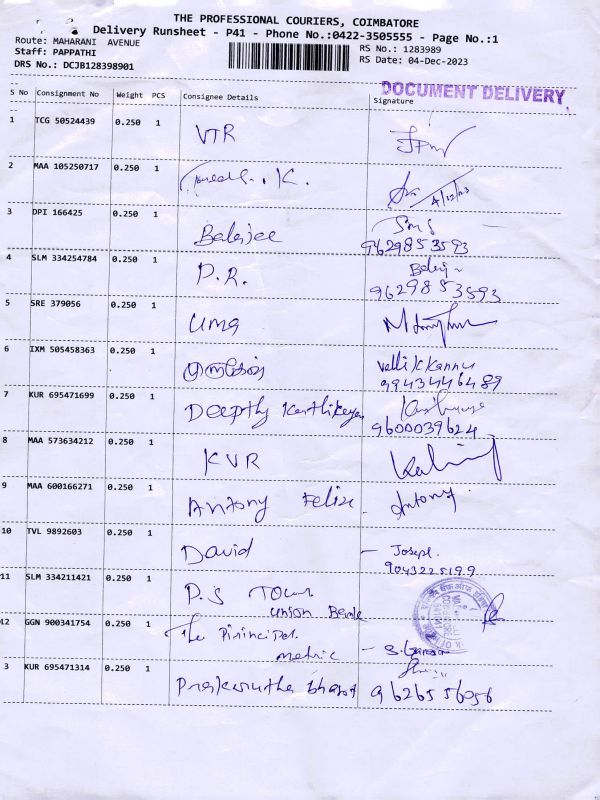 THE PROFESSIONAL COURIERS, COIMBATORE
Delivery Runsheet - P41 - Phone No.:0422-3505555 - Page No.:1
Route: MAHARANI AVENUE
Staff: PAPPATHI
DRS No.: DCJB128398901
RS No.: 1283989
RS Date: 04-Dec-2023
DOCUMENT DELIVERY
S No Consignment No Weight PCS Consignee Details Signature
1 TCG 50524439 0.250 1 VTR
2 MAA 105250717 0.250 1 K. 4/12/23
3 DPI 166425 0.250 1 Balajee
9629853593
4 SLM 334254784 0.250 1 P.R. Balaji
9629853593
5 SRE 379056 0.250 1 Uma
6 IXM 505458363 0.250 1 முருகேஷ் Velli K Kannu
9943446489
7 KUR 695471699 0.250 1 Deepthy Karthikeyan
9600039624
8 MAA 573634212 0.250 1 KVR
9 MAA 600166271 0.250 1 Antony Felix Antony
10 TVL 9892603 0.250 1 David - Joseph
9043225199
11 SLM 334211421 0.250 1 P.S Town
Union Bank
12 GGN 900341754 0.250 1 The Principal
matric
3 KUR 695471314 0.250 1 bharat 9626556056